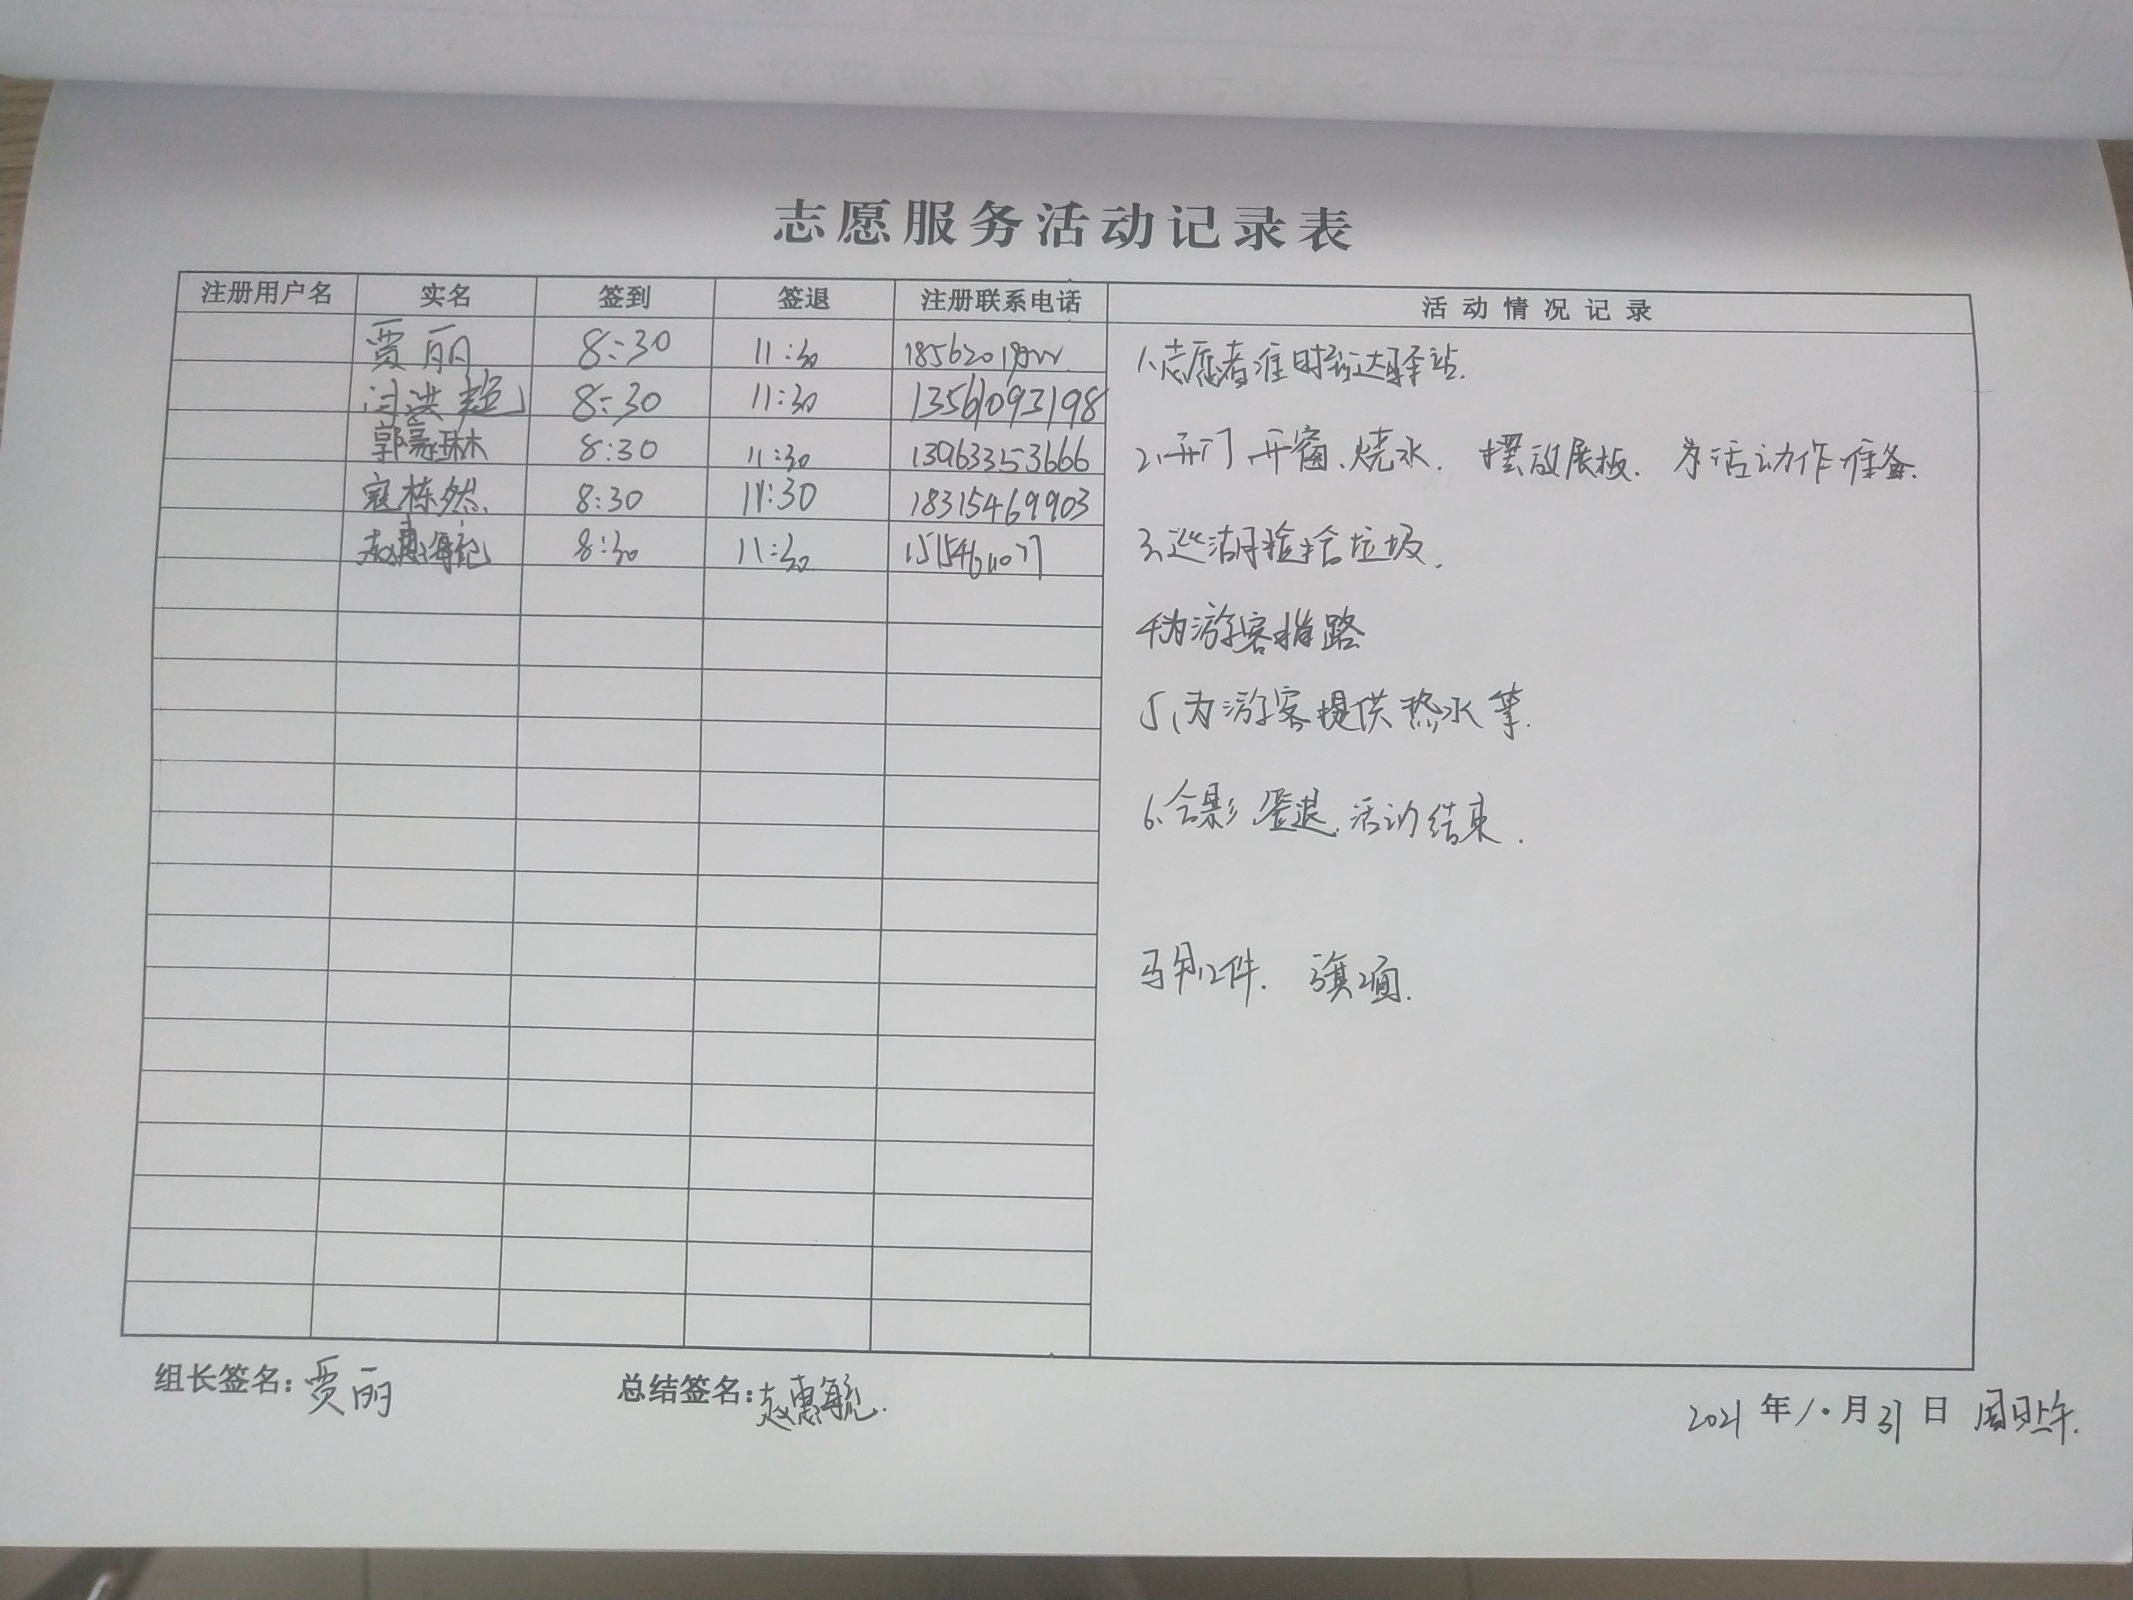 志愿服务活动记录表
注册用户名 实名 签到 签退 注册联系电话 活动情况记录
贾丽 8:30 11:30
闫洪超 8:30 11:30 13561093198
郭豪琳 8:30 11:30 13963353666
寇栋然 8:30 11:30 18315469903
赵惠毓 8:30 11:30
1、志愿者准时到达驿站.
2、开门、开窗、烧水. 摆放展板. 为活动作准备.
3、巡湖捡拾垃圾.
4为游客指路
5、为游客提供热水等.
6、合影、签退、活动结束.
马甲12件. 旗2面.
组长签名:贾丽 总结签名:赵惠毓.
2021年10月31日 周日上午.